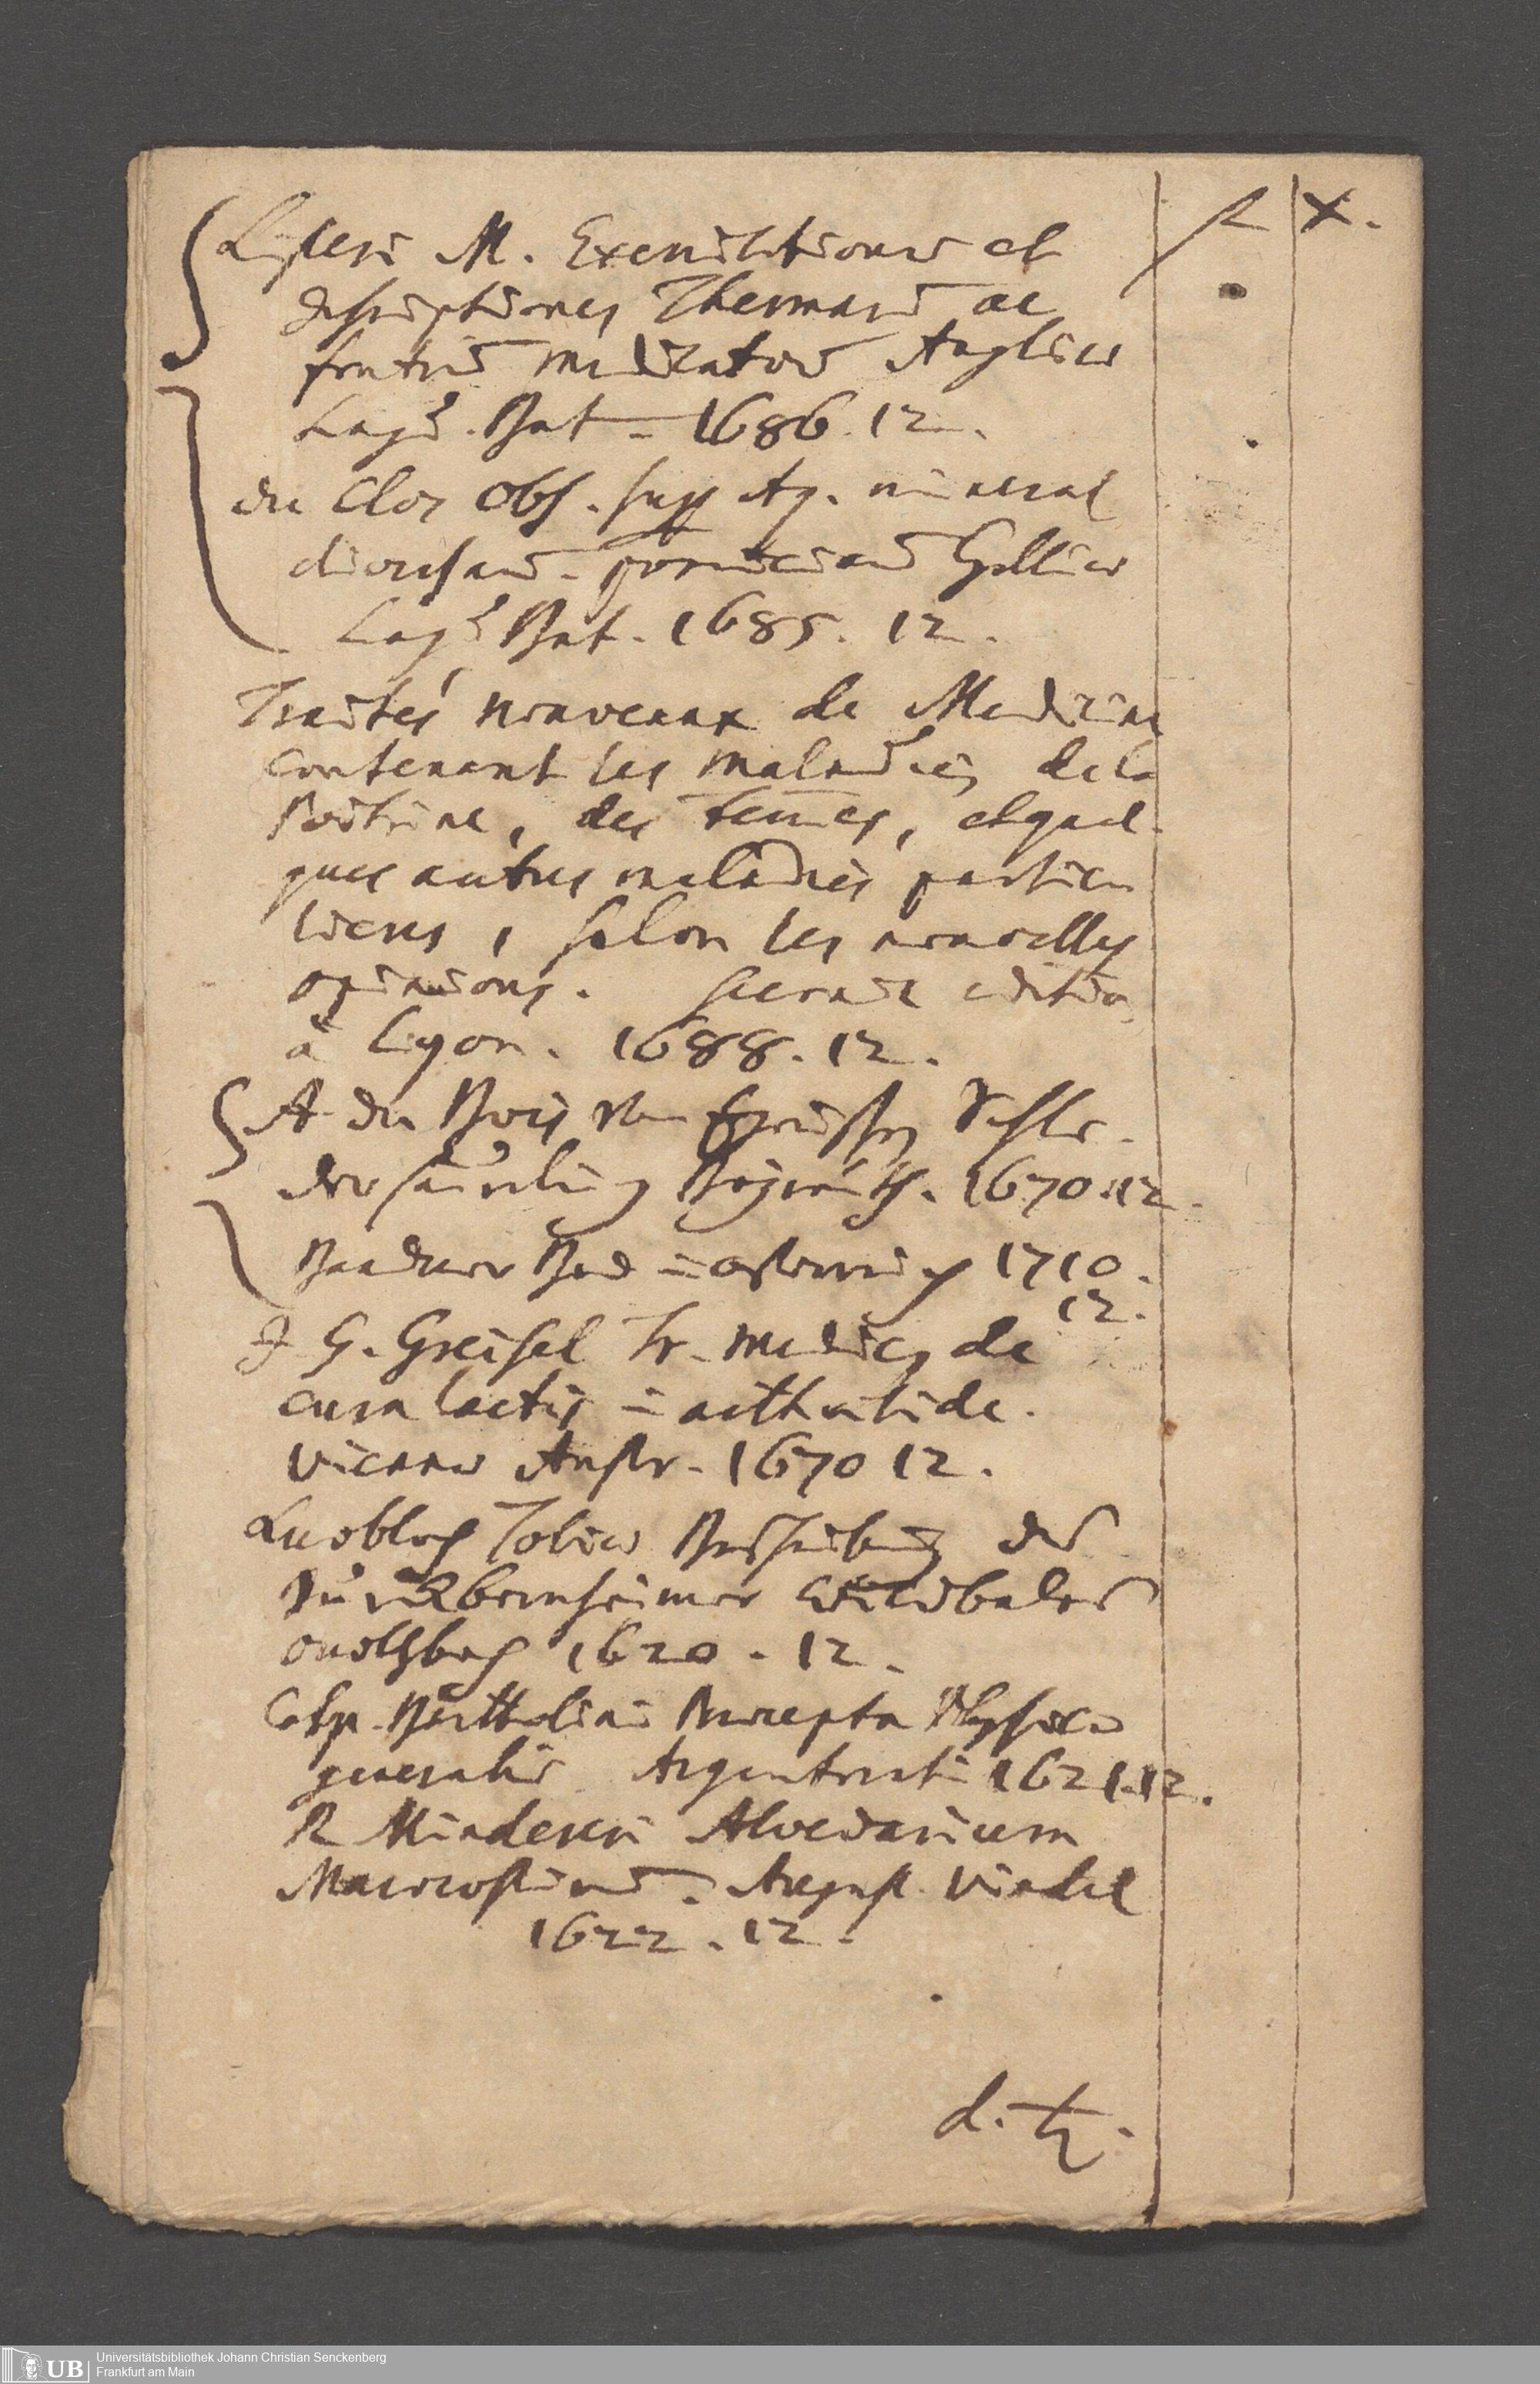 R X.
Listeri M. Exercitationes et
descriptiones Thermarū ac
fontiū medicatorū Angliae
Lugd. Bat. 1686. 12.
du Clos Obs. sup Aq. mineral
diversarū provinciarū Galliae
Lugd Bat. 1685. 12.
Traités nouveaux de Medicine
contenant les maladies de la
Poitrine, des femes, et quel-
ques autres maladies particu
lieres, selon les nouvelles
opinions. seconde editio
à Lyon. 1688. 12.
A du Bois Vom
1670. 12.
Baadner Bad in Österreich 1710.
12.
J G. Greisel Tr. medicus de
cura lactis in arthritide.
Viennae Austr. 1670 12.
Knobloch Tobiae Beschreibung des
Burckbernheimer Wildbades
Onoltzbach 1620. 12.
Casp. Bartholini Praecepta Physicae
generalis Argentorati 1621. 12.
R Mindereri Aloedarium
Marocostinū. August. Vindel
1622. 12.
Universitätsbibliothek Johann Christian Senckenberg
Frankfurt am Main
UB